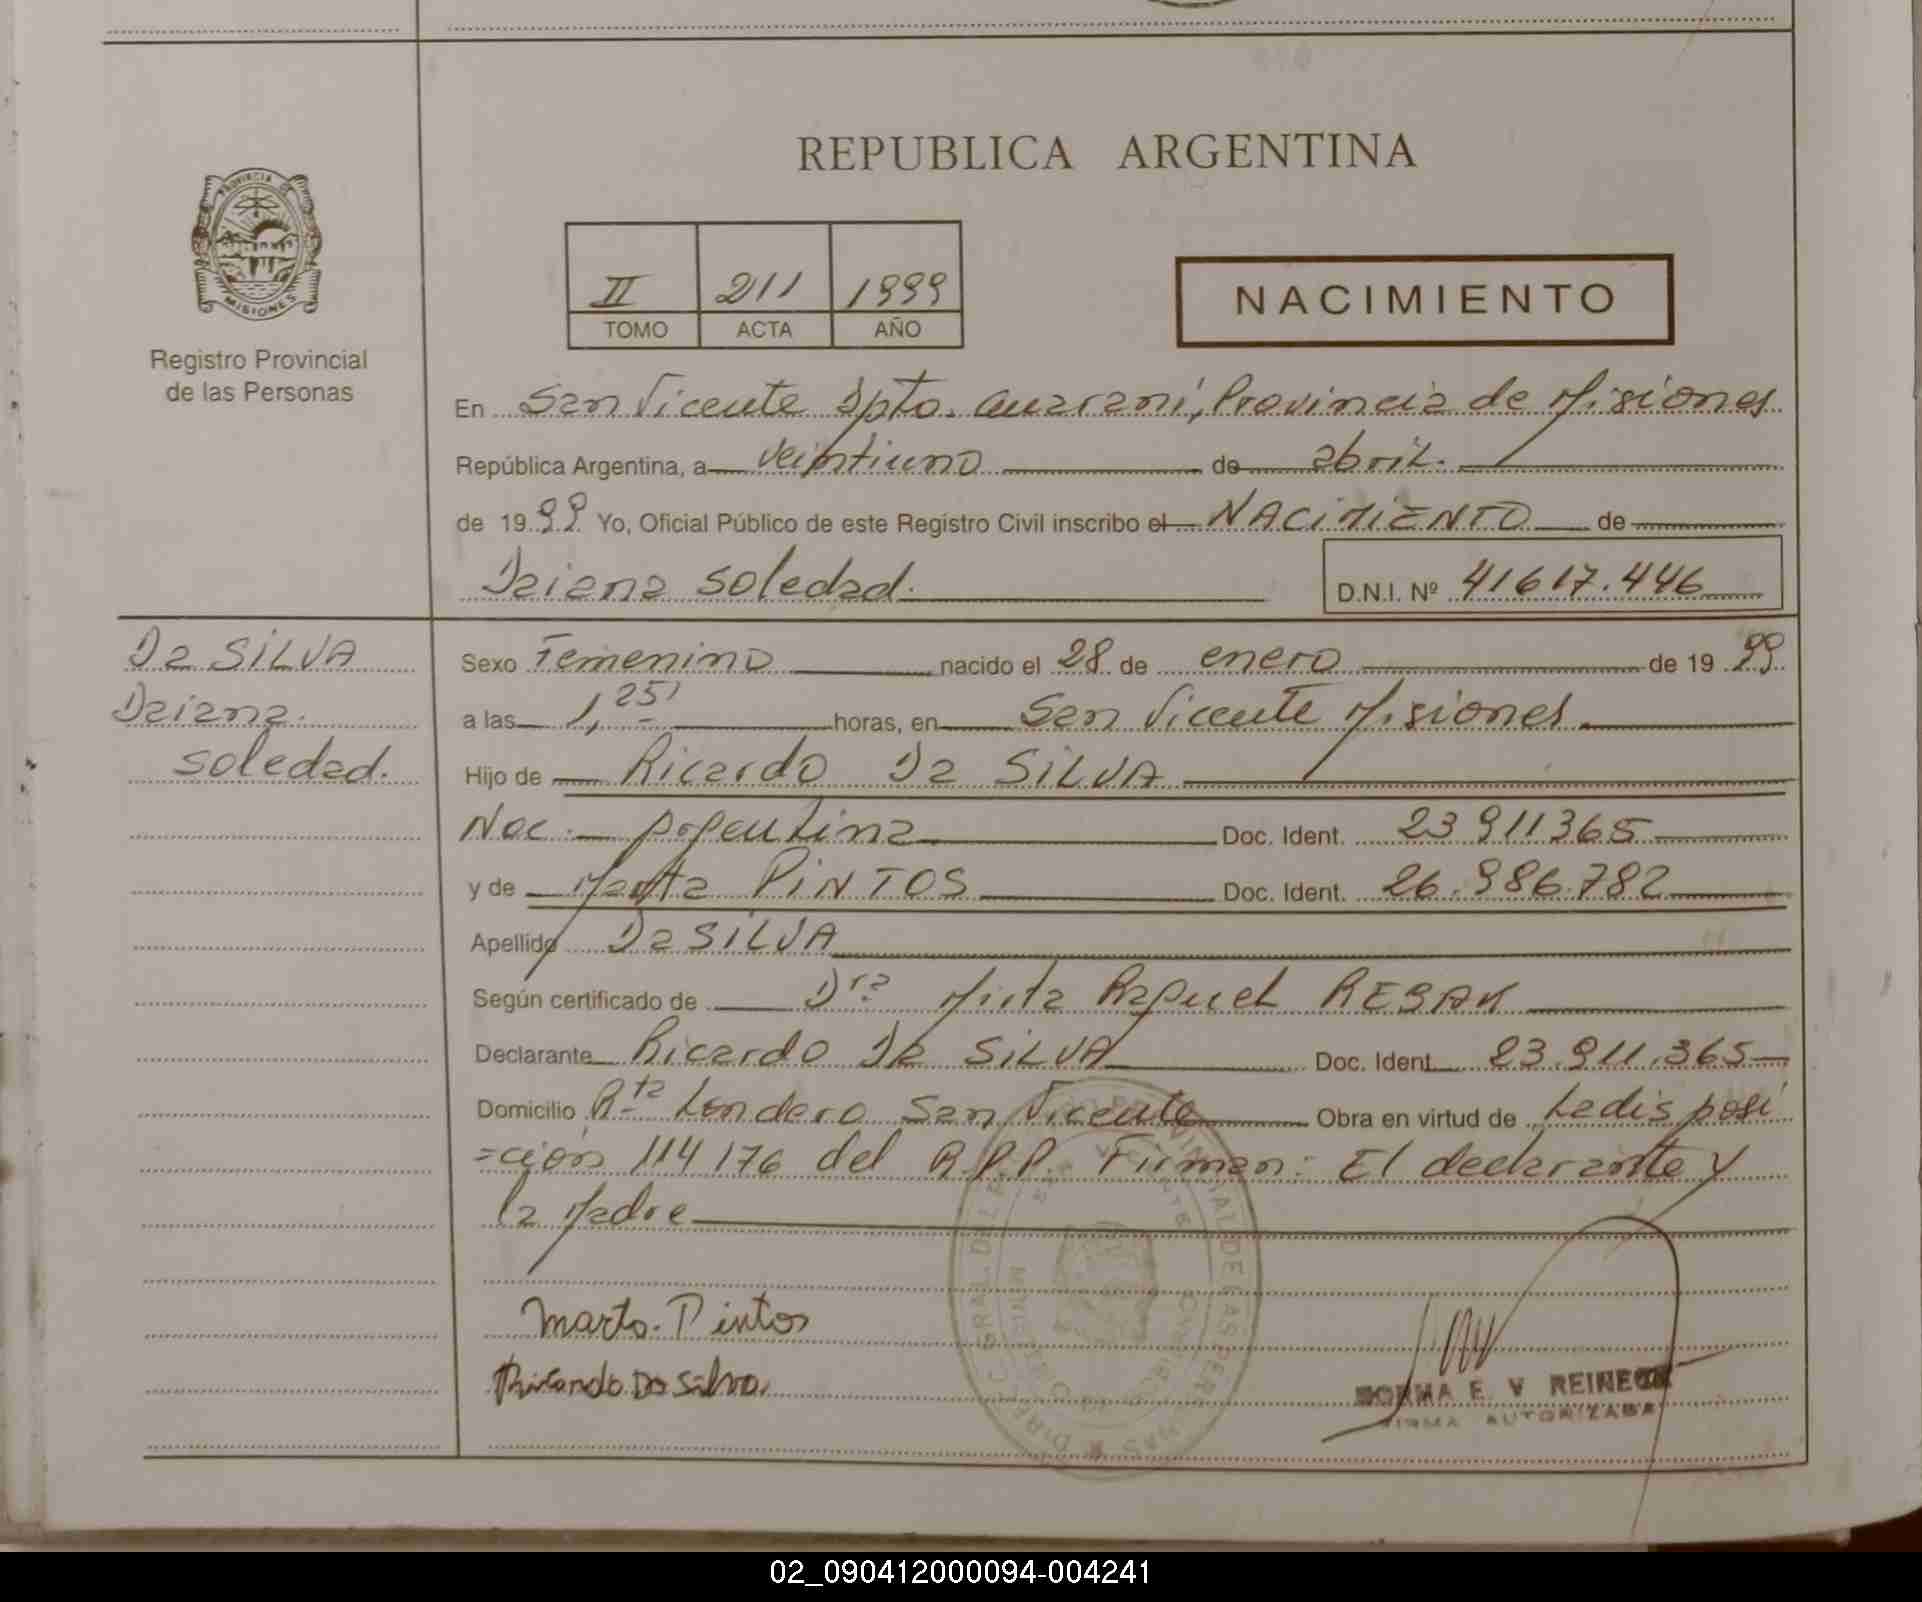 REPUBLICA ARGENTINA
PROVINCIA DE
MISIONES
Registro Provincial
de las Personas
II 211 1999
TOMO ACTA AÑO
NACIMIENTO
En San Vicente Dpto. Guaraní, Provincia de Misiones
República Argentina, a veintiuno de abril.
de 1999 Yo, Oficial Público de este Registro Civil inscribo el NACIMIENTO de
Daiana Soledad.
D.N.I. Nº 41617.446
Da SILVA
Daiana
Soledad.
Sexo Femenino nacido el 28 de enero de 1999
a las 1,25' horas, en San Vicente Misiones
Hijo de Ricardo Da SILVA
Nac. Argentina Doc. Ident. 23911365
y de Marta PINTOS Doc. Ident. 26.986.782
Apellido Da SILVA
Según certificado de Dra. Mirta Raquel
Declarante Ricardo Da SILVA Doc. Ident. 23.911.365
Domicilio Rta Londero San Vicente Obra en virtud de La disposi
=ción 114/76 del R.P.P. Firman: El declarante y
la Madre
Marta. Pintos
Ricardo Da Silva
NORMA E. V. REINECK
FIRMA AUTORIZADA
02_090412000094-004241